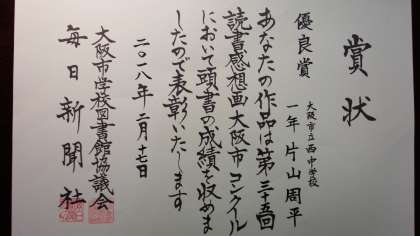 賞状
優良賞
大阪市立西中学校
一年 片山周平
あなたの作品は第三十五回
読書感想画大阪市コンクール
において頭書の成績を収めま
したので表彰いたします
二〇一八年二月十七日
大阪市学校図書館協議会
毎日新聞社